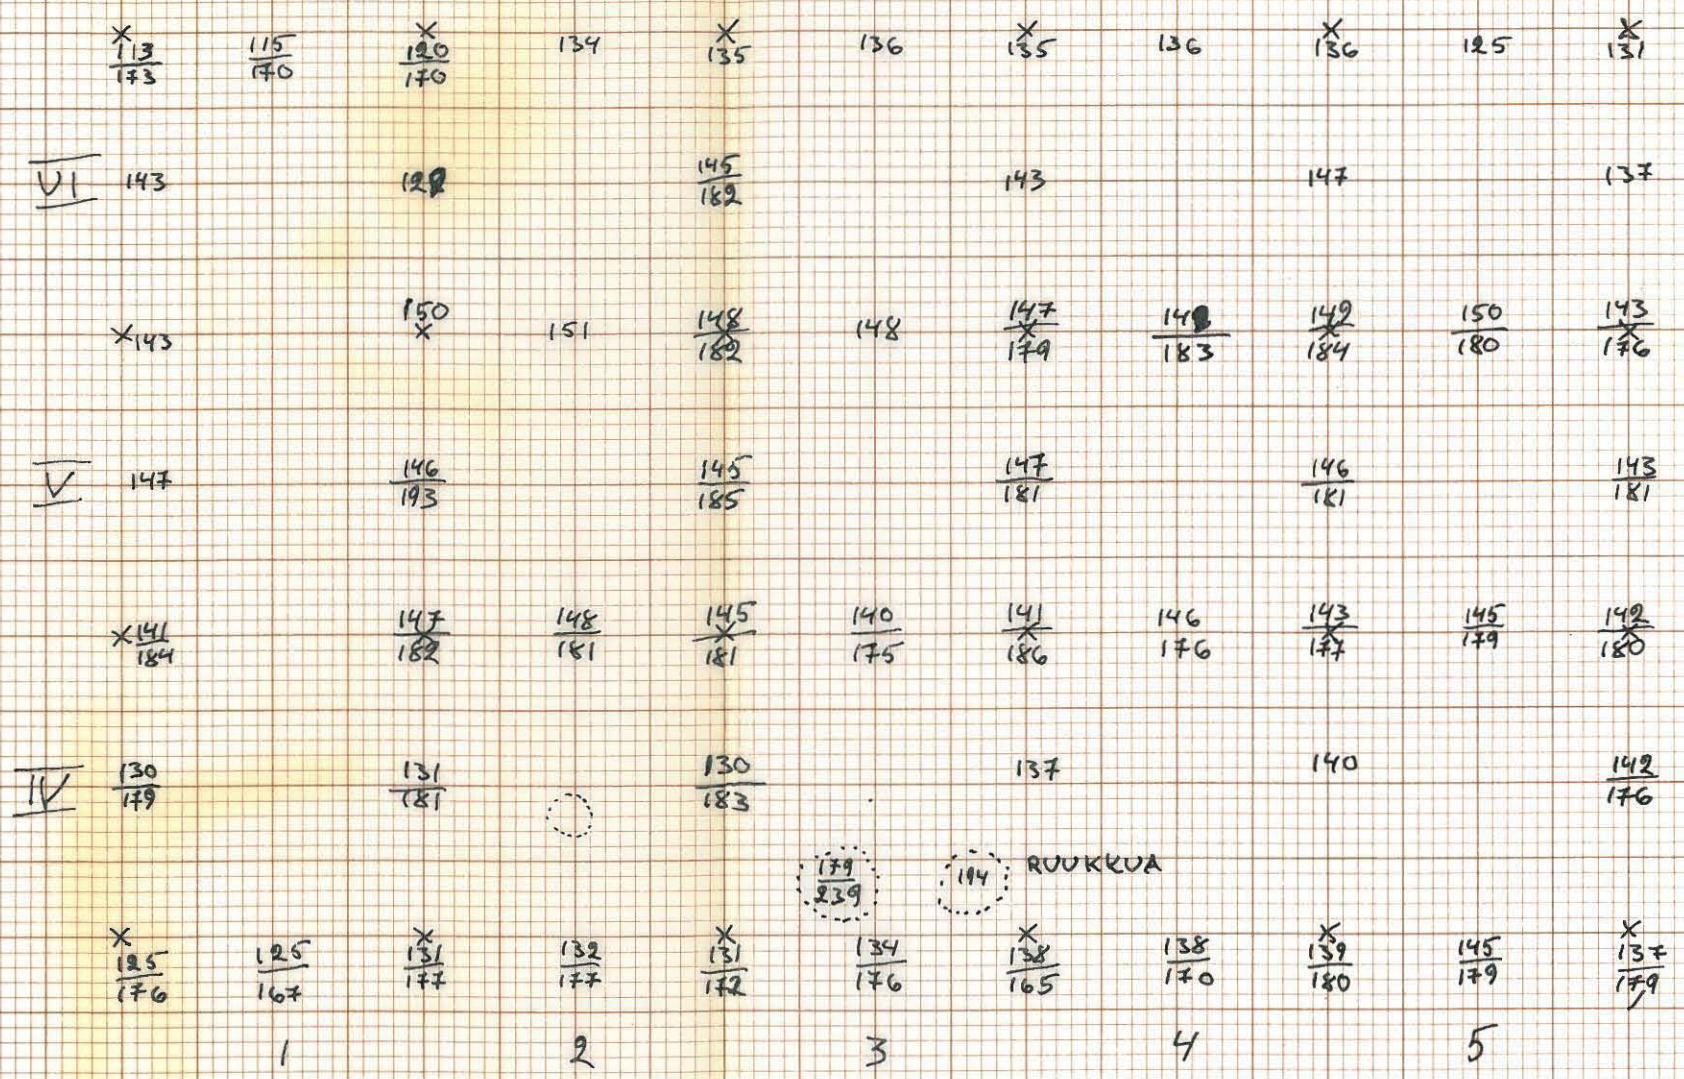 × × × × × ×
113/173 115/170 120/170 134 135 136 135 136 136 125 131
VI 143 145/182 143 147 137
×143 150 × 151 148/182 × 148 147/179 × 183 142/184 × 150/180 143/176 ×
V 147 146/193 145/185 147/181 146/181 143/181
×141/184 147/182 × 148/181 145/181 × 140/175 141/186 × 146 176 143/177 × 145/179 142/180 ×
IV 130/179 131/181 130/183 137 140 142/176
179/239 194 RUUKKUA
× × × × × ×
125/176 125/167 131/177 132/177 131/172 134/176 138/165 138/170 139/180 145/179 137/179
1 2 3 4 5